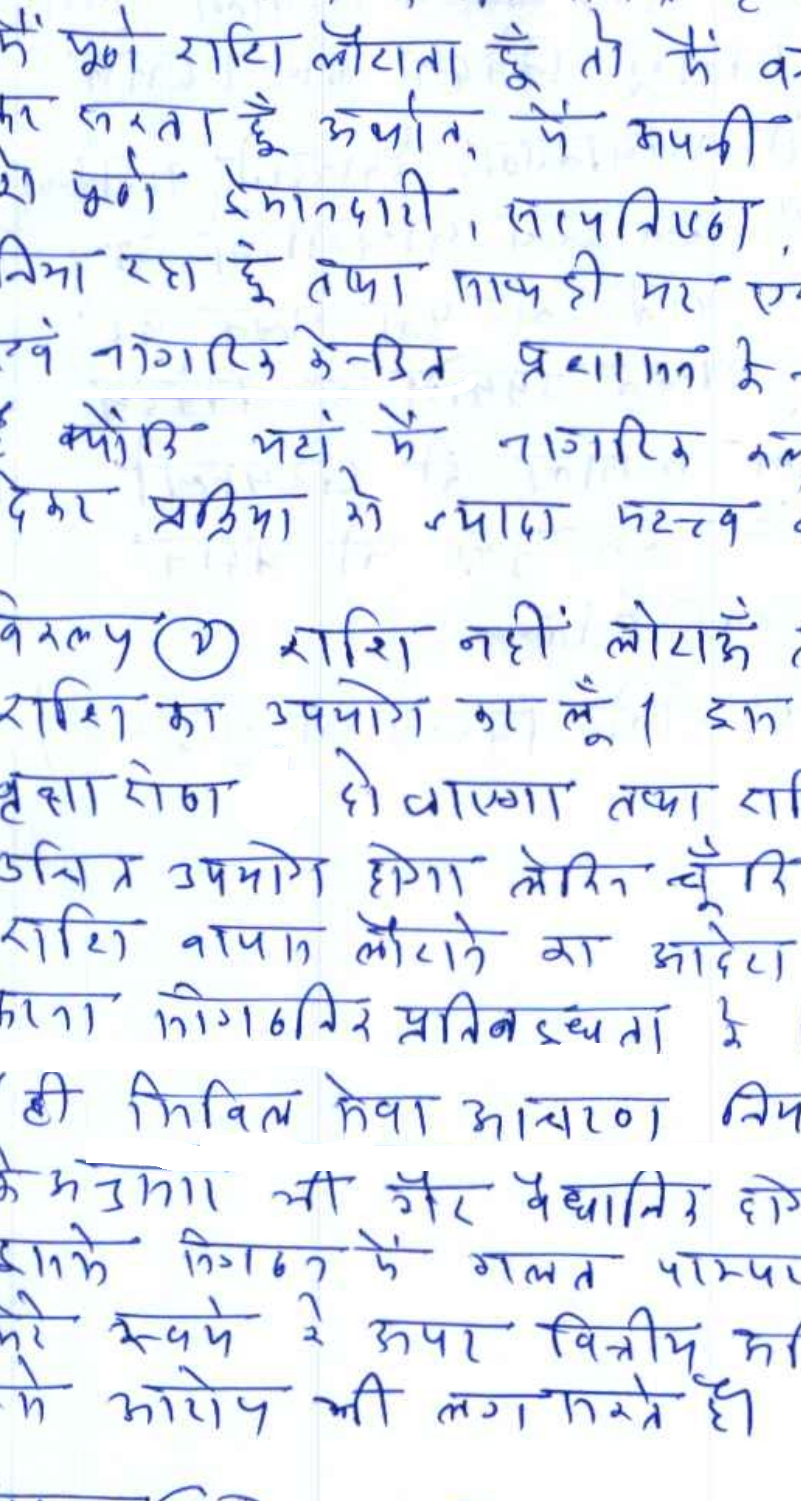 मैं पूर्ण राशि लौटाता हूँ तो मैं
कर सकता हूँ अर्थात, मैं अपनी
से पूर्ण ईमानदारी, सत्यनिष्ठा,
निभा रहा हूँ तथा साथ ही यह
एवं नागरिक केन्द्रित प्रशासन के
है क्योंकि यहां मैं नागरिक
देकर प्रक्रिया को ज्यादा महत्त्व
विकल्प (2) राशि नहीं लौटाऊँ
राशि का उपयोग कर लूँ। इस
वृक्षारोपण हो जाएगा तथा
उचित उपयोग होगा लेकिन चूँकि
राशि वापस लौटाने का आदेश
करना सांगठनिक प्रतिबद्धता के
ही सिविल सेवा आचरण
के अनुसार भी गैर वैधानिक
इससे संगठन में गलत
मेरे स्वयं के ऊपर वित्तीय
के आरोप भी लग सकते है।